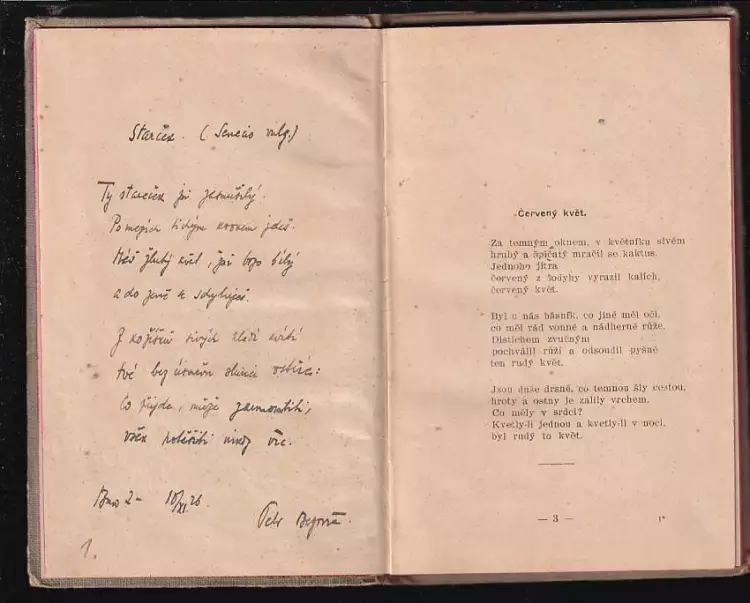 Starček. (Senecio vulg.)
Ty starčeku jsi zasmušilý.
Po mezích tichým krokem jdeš.
Máš žlutý květ, jsi brzo bílý
a do země se
Z kožíšků sivých
tvé bez úsměvu slunce
Co přijde, může zarmoutiti,
však potěšiti nikdy víc.
Brno 2 – 18/XI 26
Petr Bezruč.
1.
Červený květ.
Za temným oknem, v květníku sivém
hrubý a špičatý mračil se kaktus.
Jednoho jitra
červený z šodyhy vyrazil kalich,
červený květ.
Byl u nás básník, co jiné měl oči,
co měl rád vonné a nádherné růže.
Distichem zvučným
pochválil růži a odsoudil pyšně
ten rudý květ.
Jsou duše drsné, co temnou šly cestou,
hroty a ostny je zalily vrchem.
Co měly v srdci?
Kvetly-li jednou a kvetly-li v noci,
byl rudý to květ.
— 3 —
1*